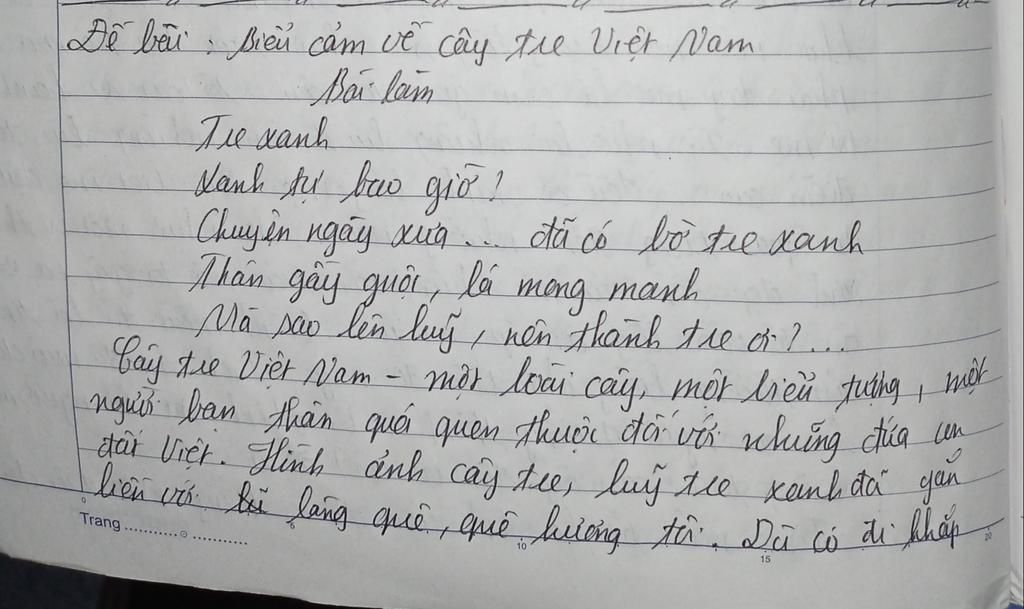 Đề bài : Biểu cảm về cây tre Việt Nam
Bài làm
Tre xanh
Xanh tự bao giờ ?
Chuyện ngày xưa ... đã có bờ tre xanh
Thân gầy guộc, lá mong manh
Mà sao lên luỹ, nên thành tre ơi ? ...
Cây tre Việt Nam - một loài cây, một biểu tượng, một
người bạn thân quá quen thuộc đối với những đứa con
đất Việt. Hình ảnh cây tre, luỹ tre xanh đã gắn
liền với làng quê, quê hương tôi. Dù có đi khắp
Trang
10
15
20